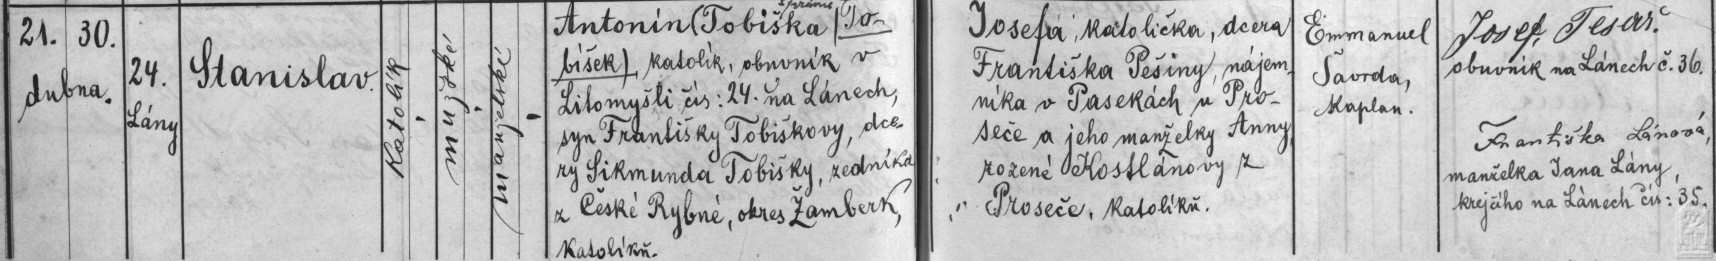 21. 30.
dubna.
24.
Lány
Stanislav.
Katolík
mužské
manželské
správně
Antonín (Tobiška | To-
bišek), katolík, obuvník v
Litomyšli čís: 24. na Lánech,
syn Františky Tobiškovy, dce-
ry Sikmunda Tobišky, zedníka
z České Rybné, okres Žamberk,
katolíků.
Josefa, katolička, dcera
Františka Pešiny, nájem-
níka v Pasekách u Pro-
seče a jeho manželky Anny,
rozené Kostlánovy z
Proseče, katolíků.
Emmanuel
Šavrda,
kaplan.
Josef Tesař.
obuvník na Lánech č. 36.
Františka Lánová,
manželka Jana Lány,
krejčího na Lánech čís: 35.